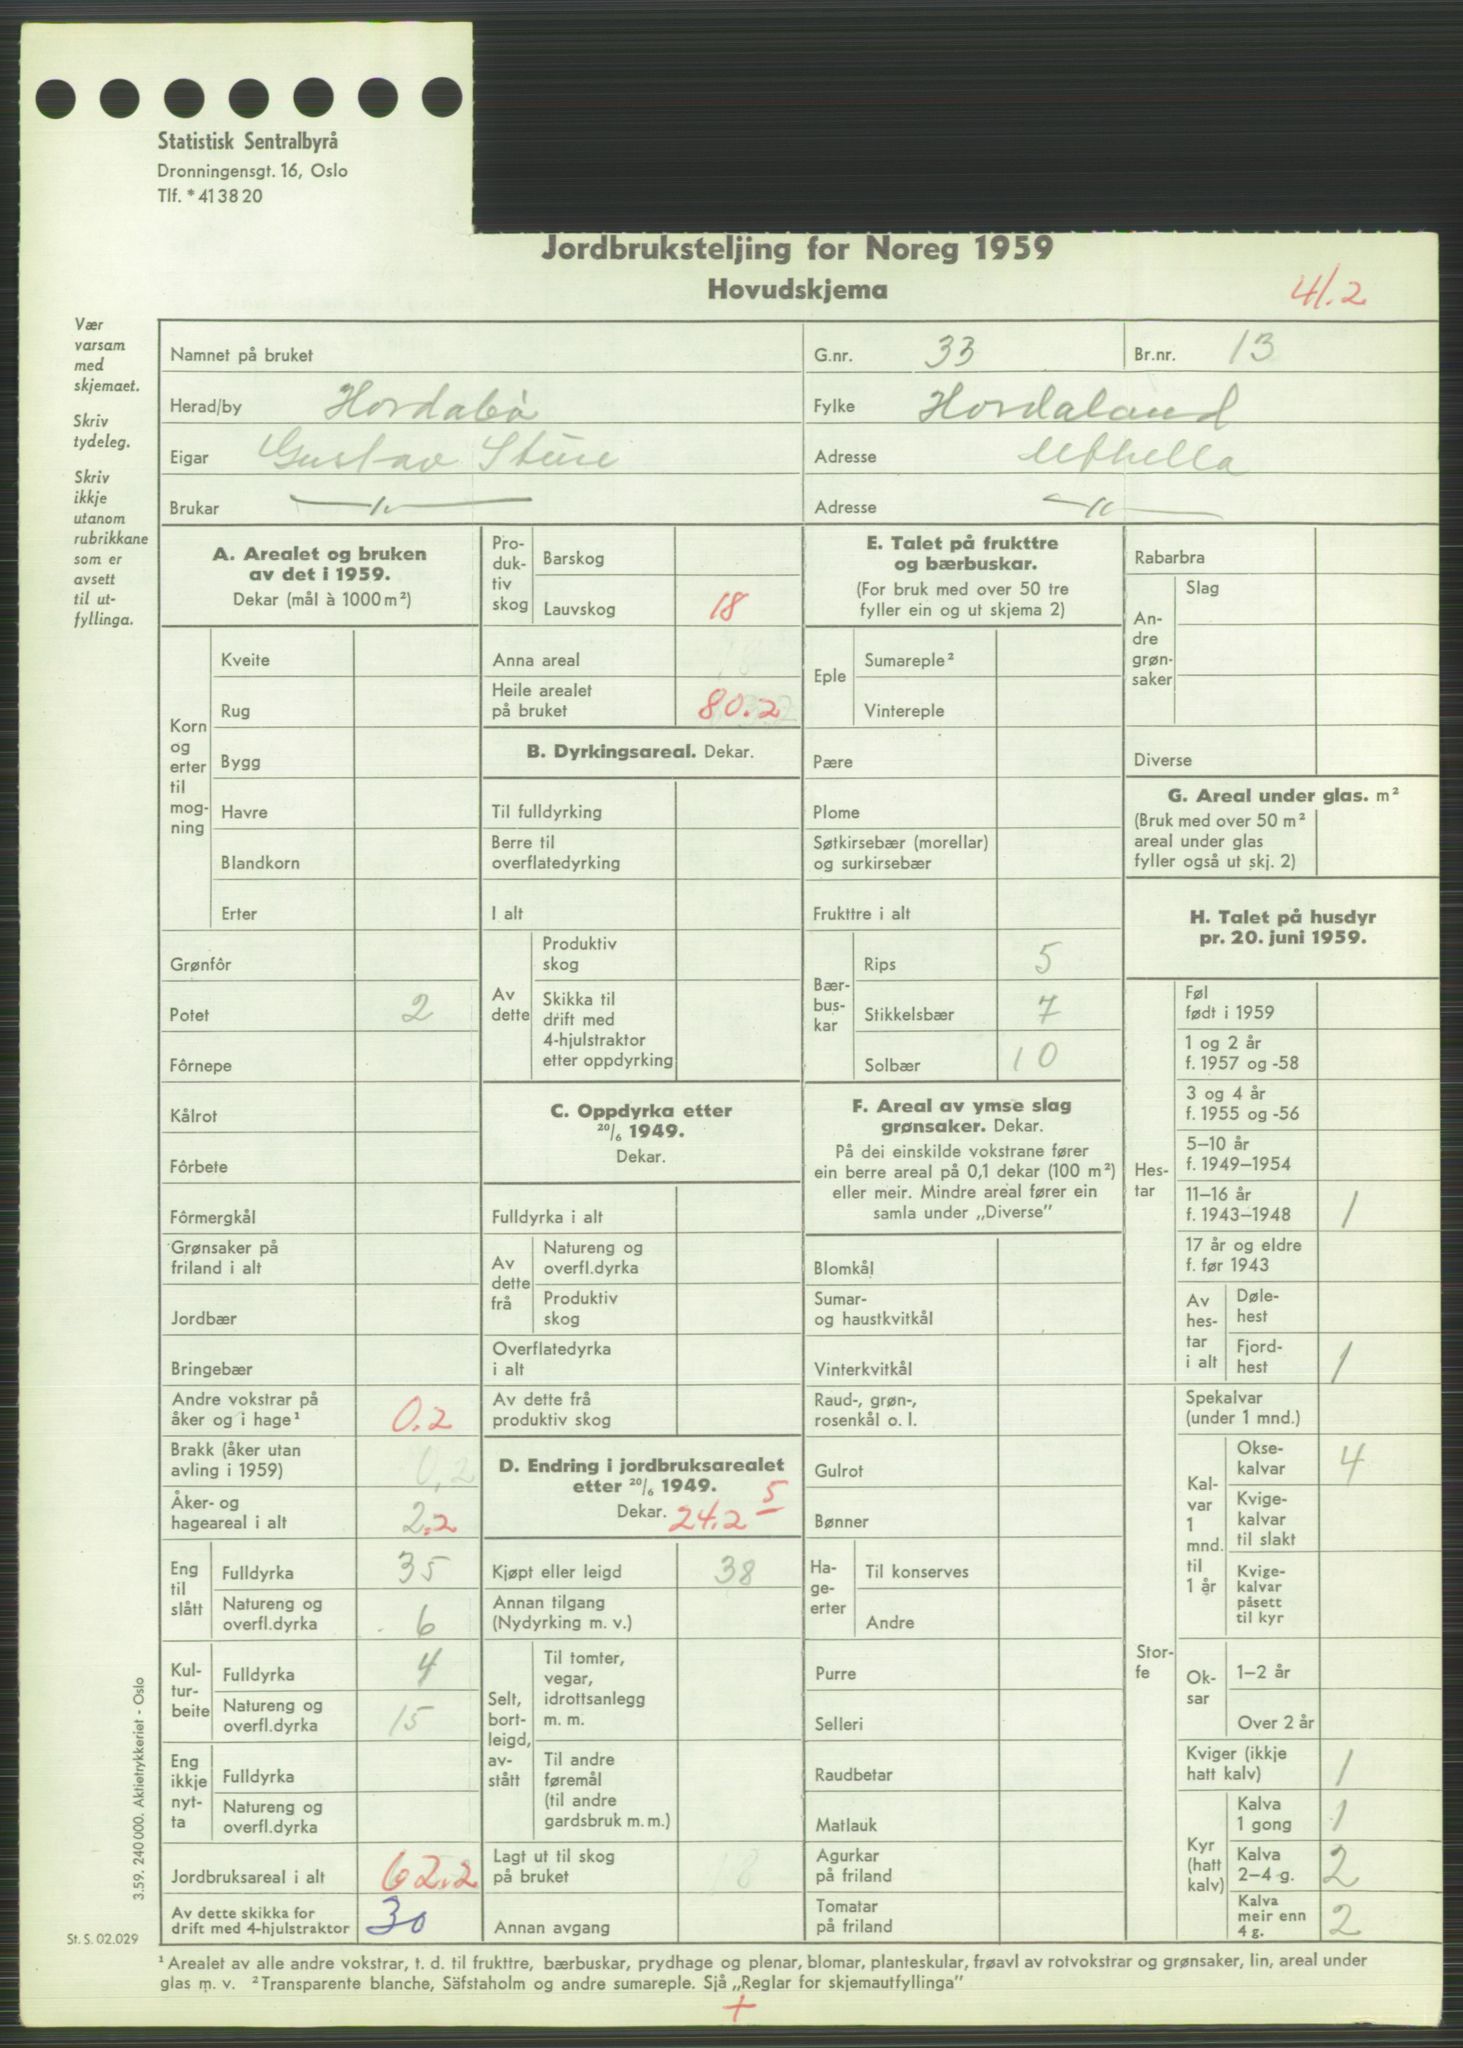 Statistisk Sentralbyrå
Dronningensgt. 16, Oslo
Tlf. *41 38 20
Jordbruksteljing for Noreg 1959
Hovudskjema
41.2
Vær
varsam
med
skjemaet.
Skriv
tydeleg.
Skriv
ikkje
utanom
rubrikkane
som er
avsett
til ut-
fyllinga.
Namnet på bruket
G.nr. 33
Br.nr. 13
Herad/by Hordabø
Fylke Hordaland
Eigar Gustav
Adresse
Brukar —"—
Adresse —"—
A. Arealet og bruken
av det i 1959.
Dekar (mål à 1000 m²)
Korn
og
erter
til
mog-
ning
Kveite
Rug
Bygg
Havre
Blandkorn
Erter
Grønfôr
Potet 2
Fôrnepe
Kålrot
Fôrbete
Fôrmergkål
Grønsaker på
friland i alt
Jordbær
Bringebær
Andre vokstrar på
åker og i hage¹ 0.2
Brakk (åker utan
avling i 1959) 0,2
Åker- og
hageareal i alt 2.2
Eng
til
slått
Fulldyrka 35
Natureng og
overfl.dyrka 6
Kul-
tur-
beite
Fulldyrka 4
Natureng og
overfl.dyrka 15
Eng
ikkje
nyt-
ta
Fulldyrka
Natureng og
overfl.dyrka
Jordbruksareal i alt 62.2
Av dette skikka for
drift med 4-hjulstraktor 30
Pro-
duk-
tiv
skog
Barskog
Lauvskog 18
Anna areal 18
Heile arealet
på bruket 80.2
B. Dyrkingsareal. Dekar.
Til fulldyrking
Berre til
overflatedyrking
I alt
Av
dette
Produktiv
skog
Skikka til
drift med
4-hjulstraktor
etter oppdyrking
C. Oppdyrka etter
20/6 1949.
Dekar.
Fulldyrka i alt
Av
dette
frå
Natureng og
overfl.dyrka
Produktiv
skog
Overflatedyrka
i alt
Av dette frå
produktiv skog
D. Endring i jordbruksarealet
etter 20/6 1949.
Dekar. 24.2 5
Kjøpt eller leigd 38
Annan tilgang
(Nydyrking m. v.)
Selt,
bort-
leigd,
av-
stått
Til tomter,
vegar,
idrottsanlegg
m. m.
Til andre
føremål
(til andre
gardsbruk m. m.)
Lagt ut til skog
på bruket 18
Annan avgang
E. Talet på frukttre
og bærbuskar.
(For bruk med over 50 tre
fyller ein og ut skjema 2)
Eple
Sumareple²
Vintereple
Pære
Plome
Søtkirsebær (morellar)
og surkirsebær
Frukttre i alt
Bær-
bus-
kar
Rips 5
Stikkelsbær 7
Solbær 10
F. Areal av ymse slag
grønsaker. Dekar.
På dei einskilde vokstrane fører
ein berre areal på 0,1 dekar (100 m²)
eller meir. Mindre areal fører ein
samla under „Diverse”
Blomkål
Sumar-
og haustkvitkål
Vinterkvitkål
Raud-, grøn-,
rosenkål o. l.
Gulrot
Bønner
Ha-
ge-
erter
Til konserves
Andre
Purre
Selleri
Raudbetar
Matlauk
Agurkar
på friland
Tomatar
på friland
Rabarbra
An-
dre
grøn-
saker
Slag
Diverse
G. Areal under glas. m²
(Bruk med over 50 m²
areal under glas
fyller også ut skj. 2)
H. Talet på husdyr
pr. 20. juni 1959.
Hes-
tar
Føl
født i 1959
1 og 2 år
f. 1957 og -58
3 og 4 år
f. 1955 og -56
5–10 år
f. 1949–1954
11–16 år
f. 1943–1948 1
17 år og eldre
f. før 1943
Av
hes-
tar
i alt
Døle-
hest
Fjord-
hest 1
Stor-
fe
Spekalvar
(under 1 mnd.)
Kal-
var
1
mnd.
til
1 år
Okse-
kalvar 4
Kvige-
kalvar
til slakt
Kvige-
kalvar
påsett
til kyr
Ok-
sar
1–2 år
Over 2 år
Kviger (ikkje
hatt kalv) 1
Kyr
(hatt
kalv)
Kalva
1 gong 1
Kalva
2–4 g. 2
Kalva
meir enn
4 g. 2
3.59. 240 000. Aktietrykkeriet - Oslo
St. S. 02.029
¹ Arealet av alle andre vokstrar, t. d. til frukttre, bærbuskar, prydhage og plenar, blomar, planteskular, frøavl av rotvokstrar og grønsaker, lin, areal under
glas m. v. ² Transparente blanche, Säfstaholm og andre sumareple. Sjå „Reglar for skjemautfyllinga”
+